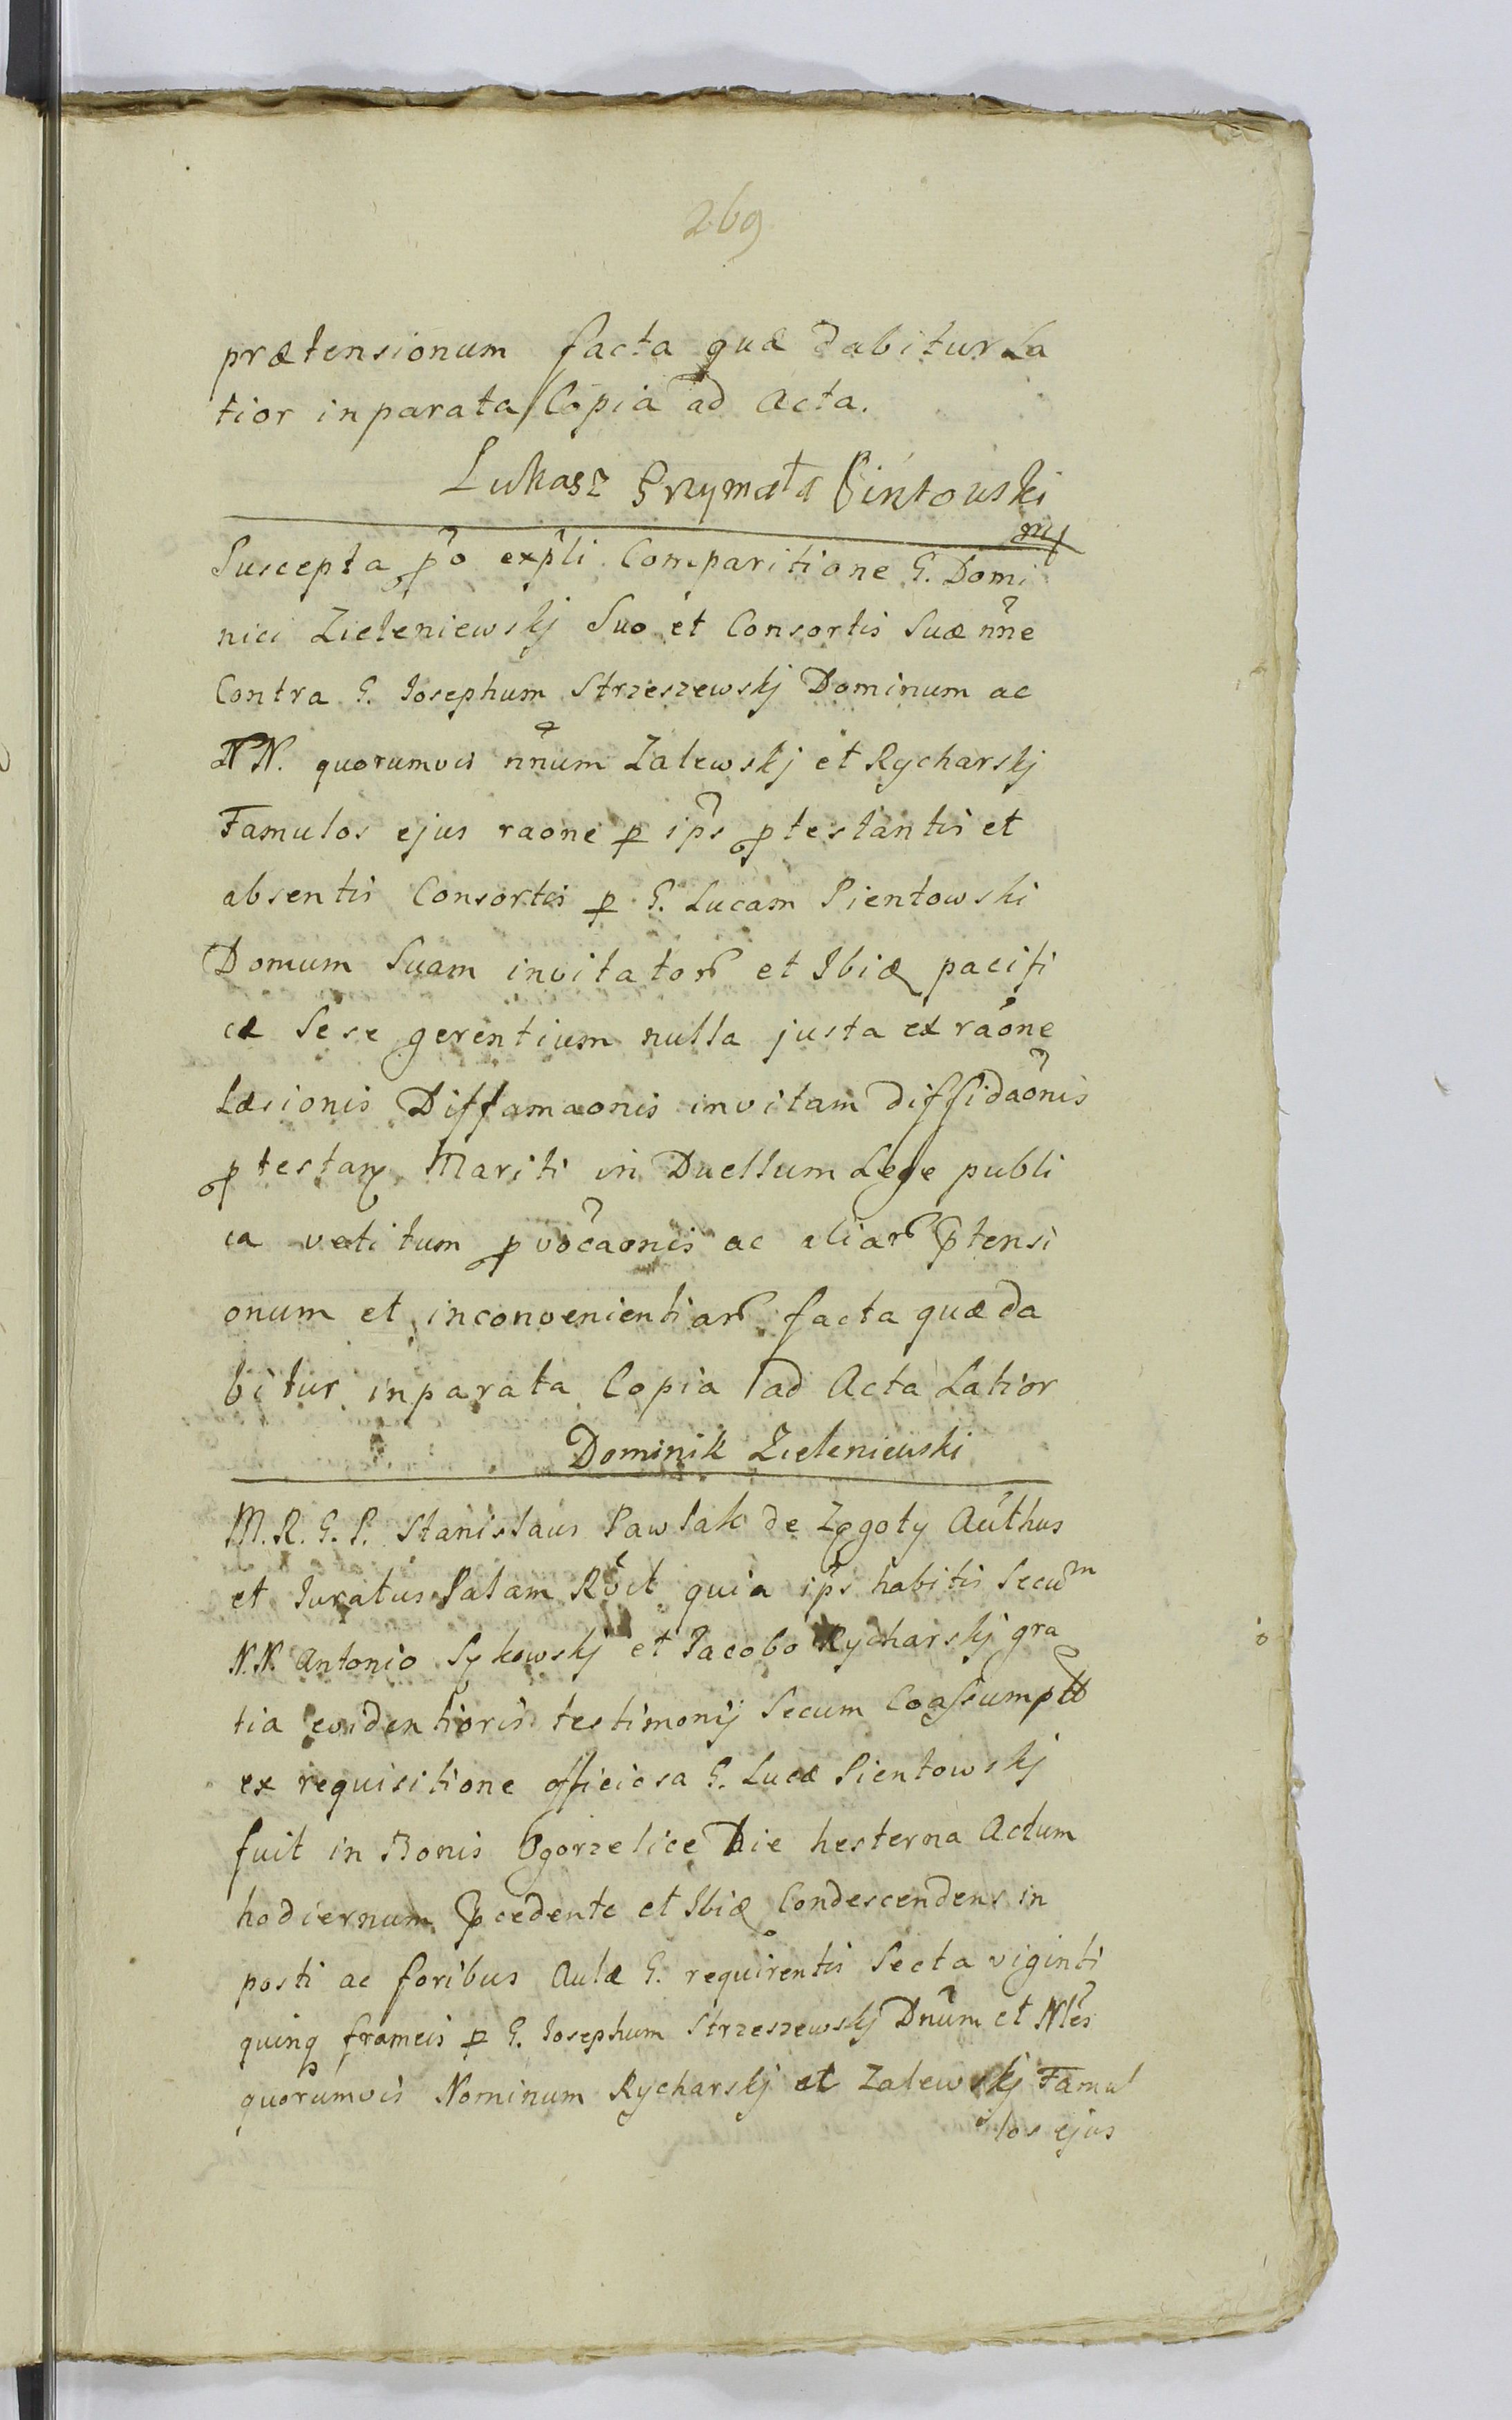 269
prætensionum facta quæ dabitur La
tior in parata Copia ad Acta.
Lukasz Grzymała Pintowski
mp
Suscepta po expli Comparitione G. Domi
nici Zieleniewskj Suo et Consortis Suæ nne
Contra G. Josephum Strzeszewskj Dominum ac
NN. quorumvis nnum Zalewskj et Rycharskj
Famulos ejus raone p ips ptestantis et
absentis Consortis p G. Lucam Pientowski
Domum Suam invitator et Ibiq pacifi
cæ Sese gerentium nulla justa ex raone
Læsionis Diffamaonis in vitam diffidaonis
ptestan Mariti in Duellum Lege publi
ca vetitum pvocaonis ac aliar ptensi
onum et inconvenientiar facta quæ da
bitur in parata Copia ad Acta Latior
Dominik Zieleniewski
M. R. G. P. Stanislaus Pawlak de Zągoty Authus
et Juratus Palam Rect quia ips habitis Secum
N.N. Antonio Sykowskj et Jacobo Rycharskj gra
tia evidentioris testimonij Secum Coassumptt
ex requisitione officiosa G. Lucæ Pientowskj
fuit in Bonis Ogorzelice Die hesterna Actum
hodiernum pcedente et Ibiq Condescendens in
posti ac foribus Aulæ G. requirentis Secta viginti
quinq frameis p G. Josephum Strzeszewskj Dnum et Nles
quorumvis Nominum Rycharskj et Zalewskj Famu
los ejus